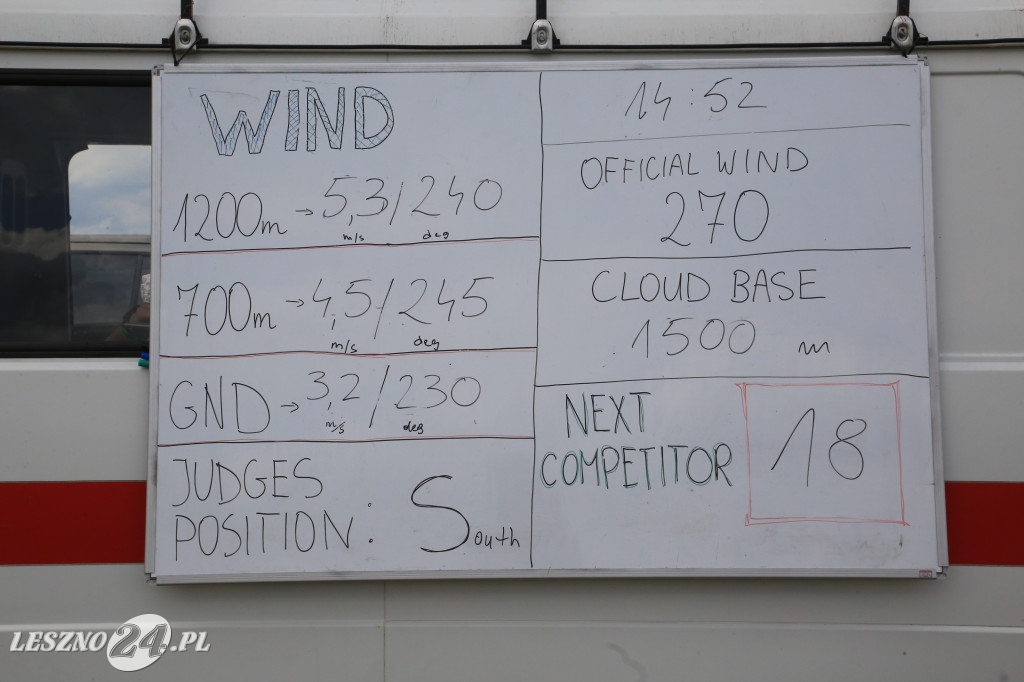 WIND
1200m → 5,3 / 240
m/s deg
700m → 4,5 / 245
m/s deg
GND → 3,2 / 230
m/s deg
JUDGES
POSITION: South
14:52
OFFICIAL WIND
270
CLOUD BASE
1500 m
NEXT
COMPETITOR
18
LESZNO24.PL